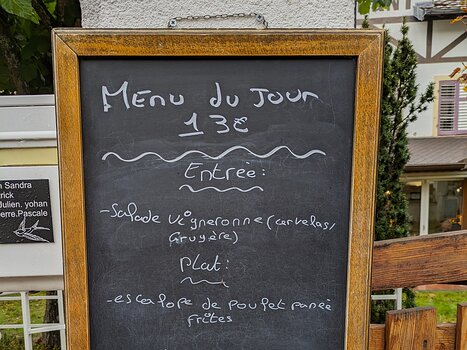 Menu du Jour
13€
Entrée:
-Salade Vigneronne (cervelas/
Gruyère)
Plat:
-escalope de poulet panée
frites
Sandra
Julien. yohan
Pascale